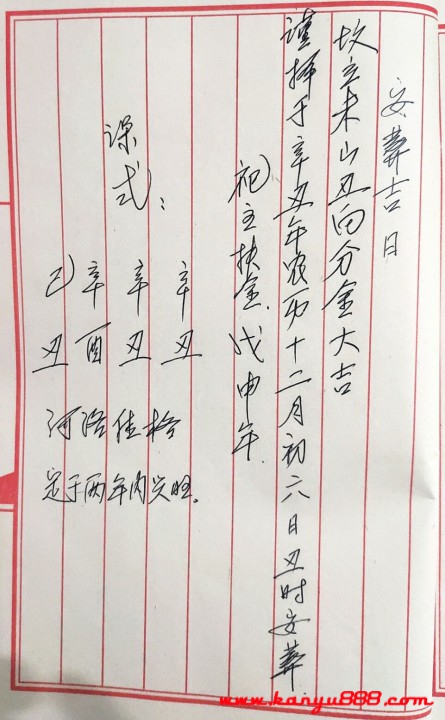 安葬吉日
坟立未山丑向分金大吉
谨择于辛丑年农历十二月初六日丑时安葬
祀主扶金.戊申年.
课式：
辛丑
辛丑
辛酉
己丑
河洛佳格
定于两年内兴旺。
www.kanyu888.com